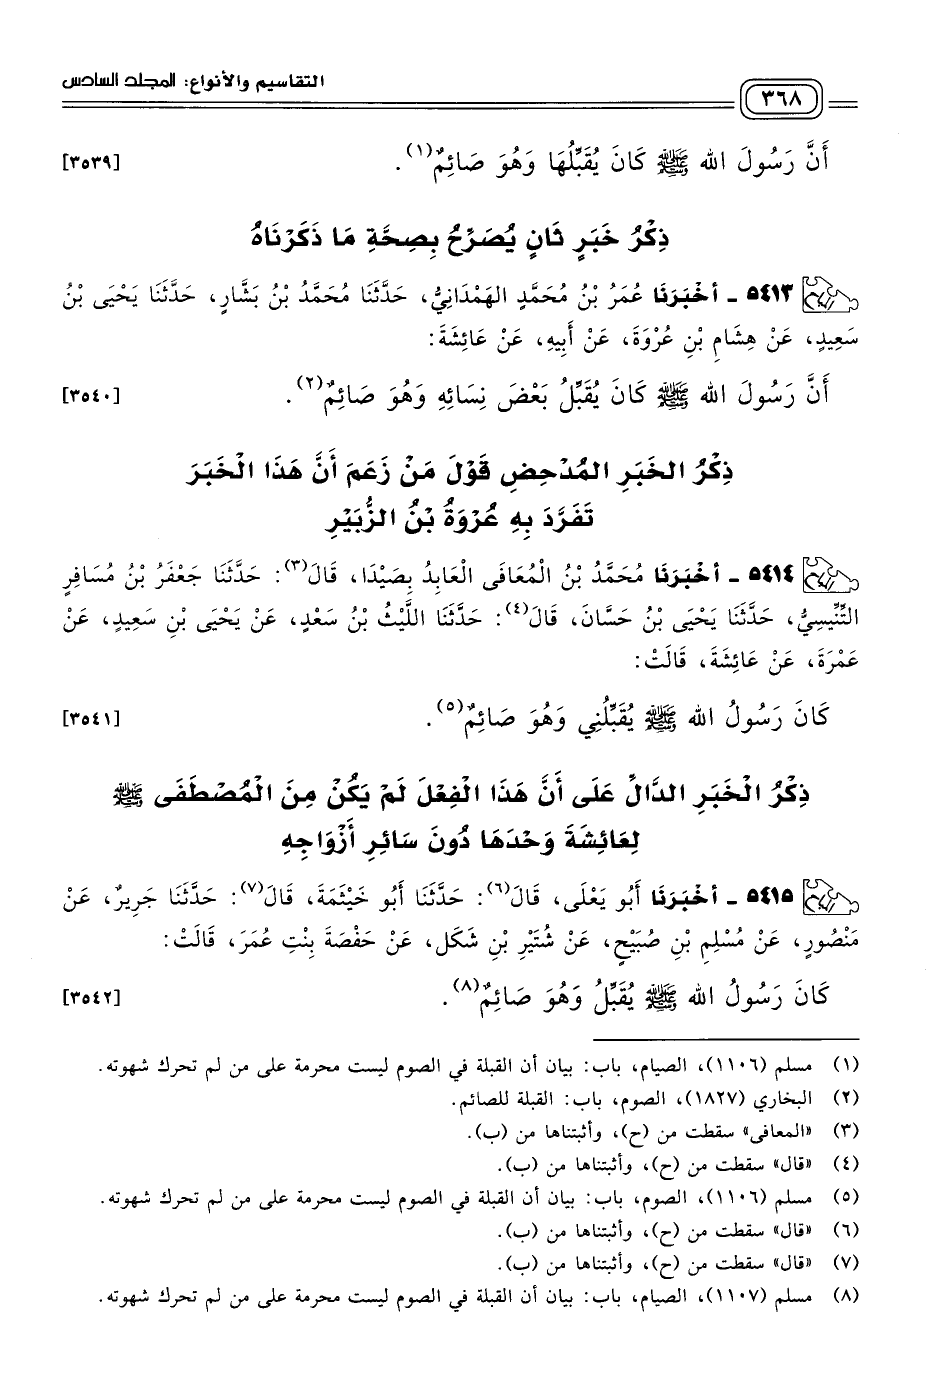 ٣٦٨ التقاسيم والأنواع: المجلد السادس
أَنَّ رَسُولَ الله ﷺ كَانَ يُقَبِّلُهَا وَهُوَ صَائِمٌ(١). [٣٥٣٩]
ذِكْرُ خَبَرٍ ثَانٍ يُصَرِّحُ بِصِحَّةِ مَا ذَكَرْنَاهُ
٥٤١٣ - أَخْبَرَنَا عُمَرُ بْنُ مُحَمَّدٍ الهَمْدَانِيُّ، حَدَّثَنَا مُحَمَّدُ بْنُ بَشَّارٍ، حَدَّثَنَا يَحْيَى بْنُ
سَعِيدٍ، عَنْ هِشَامِ بْنِ عُرْوَةَ، عَنْ أَبِيهِ، عَنْ عَائِشَةَ:
أَنَّ رَسُولَ الله ﷺ كَانَ يُقَبِّلُ بَعْضَ نِسَائِهِ وَهُوَ صَائِمٌ(٢). [٣٥٤٠]
ذِكْرُ الخَبَرِ المُدْحِضِ قَوْلَ مَنْ زَعَمَ أَنَّ هَذَا الْخَبَرَ
تَفَرَّدَ بِهِ عُرْوَةُ بْنُ الزُّبَيْرِ
٥٤١٤ - أَخْبَرَنَا مُحَمَّدُ بْنُ الْمُعَافَى الْعَابِدُ بِصَيْدَا، قَالَ(٣): حَدَّثَنَا جَعْفَرُ بْنُ مُسَافِرٍ
التِّنِّيسِيُّ، حَدَّثَنَا يَحْيَى بْنُ حَسَّانَ، قَالَ(٤): حَدَّثَنَا اللَّيْثُ بْنُ سَعْدٍ، عَنْ يَحْيَى بْنِ سَعِيدٍ، عَنْ
عَمْرَةَ، عَنْ عَائِشَةَ، قَالَتْ:
كَانَ رَسُولُ الله ﷺ يُقَبِّلُنِي وَهُوَ صَائِمٌ(٥). [٣٥٤١]
ذِكْرُ الْخَبَرِ الدَّالِّ عَلَى أَنَّ هَذَا الْفِعْلَ لَمْ يَكُنْ مِنَ الْمُصْطَفَى ﷺ
لِعَائِشَةَ وَحْدَهَا دُونَ سَائِرِ أَزْوَاجِهِ
٥٤١٥ - أَخْبَرَنَا أَبُو يَعْلَى، قَالَ(٦): حَدَّثَنَا أَبُو خَيْثَمَةَ، قَالَ(٧): حَدَّثَنَا جَرِيرٌ، عَنْ
مَنْصُورٍ، عَنْ مُسْلِمِ بْنِ صُبَيْحٍ، عَنْ شُتَيْرِ بْنِ شَكَلٍ، عَنْ حَفْصَةَ بِنْتِ عُمَرَ، قَالَتْ:
كَانَ رَسُولُ الله ﷺ يُقَبِّلُ وَهُوَ صَائِمٌ(٨). [٣٥٤٢]
(١) مسلم (١١٠٦)، الصيام، باب: بيان أن القبلة في الصوم ليست محرمة على من لم تحرك شهوته.
(٢) البخاري (١٨٢٧)، الصوم، باب: القبلة للصائم.
(٣) «المعافى» سقطت من (ح)، وأثبتناها من (ب).
(٤) «قال» سقطت من (ح)، وأثبتناها من (ب).
(٥) مسلم (١١٠٦)، الصوم، باب: بيان أن القبلة في الصوم ليست محرمة على من لم تحرك شهوته.
(٦) «قال» سقطت من (ح)، وأثبتناها من (ب).
(٧) «قال» سقطت من (ح)، وأثبتناها من (ب).
(٨) مسلم (١١٠٧)، الصيام، باب: بيان أن القبلة في الصوم ليست محرمة على من لم تحرك شهوته.